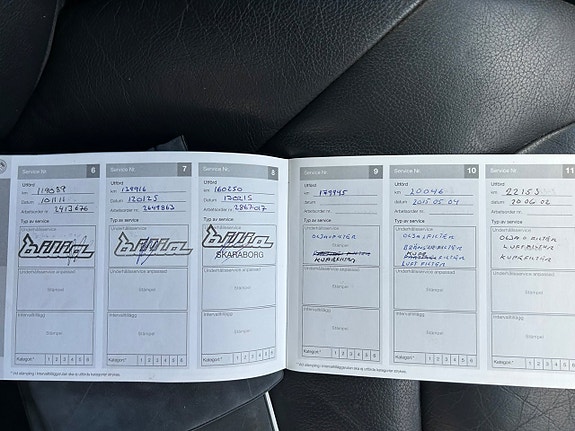 Service Nr. 6
Utförd
km 119089
Datum 101111
Arbetsorder nr 2413676
Typ av service
bilia
Underhållsservice anpassad
Stämpel
Intervalltillägg
Stämpel
Kategori* 1 2 3 4 5 6
Service Nr. 7
Utförd
km 139916
Datum 120125
Arbetsorder nr 2649863
Typ av service
bilia
Underhållsservice anpassad
Stämpel
Intervalltillägg
Stämpel
Kategori* 1 2 3 4 5 6
Service Nr. 8
Utförd
km 160250
Datum 130215
Arbetsorder nr 2867017
Typ av service
bilia
SKARABORG
Underhållsservice anpassad
Stämpel
Intervalltillägg
Stämpel
Kategori* 1 2 3 4 5 6
Service Nr. 9
Utförd
km 179945
Datum
Arbetsorder nr
Typ av service
Underhållsservice
OLJA+FILTER
KUPEFILTER
Underhållsservice anpassad
Stämpel
Intervalltillägg
Stämpel
Kategori* 1 2 3 4 5 6
Service Nr. 10
Utförd
km 20046
Datum 2015 05 04
Arbetsorder nr
Typ av service
Underhållsservice
OLJA+FILTER
BRÄNSLEFILTER
LUFTFILTER
Underhållsservice anpassad
Stämpel
Intervalltillägg
Stämpel
Kategori* 1 2 3 4 5 6
Service Nr. 11
Utförd
km 22153
Datum 20 06 02
Arbetsorder nr
Typ av service
Underhållsservice
OLJA+FILTER
LUFTFILTER
KUPEFILTER
Underhållsservice anpassad
Stämpel
Intervalltillägg
Stämpel
Kategori* 1 2 3 4